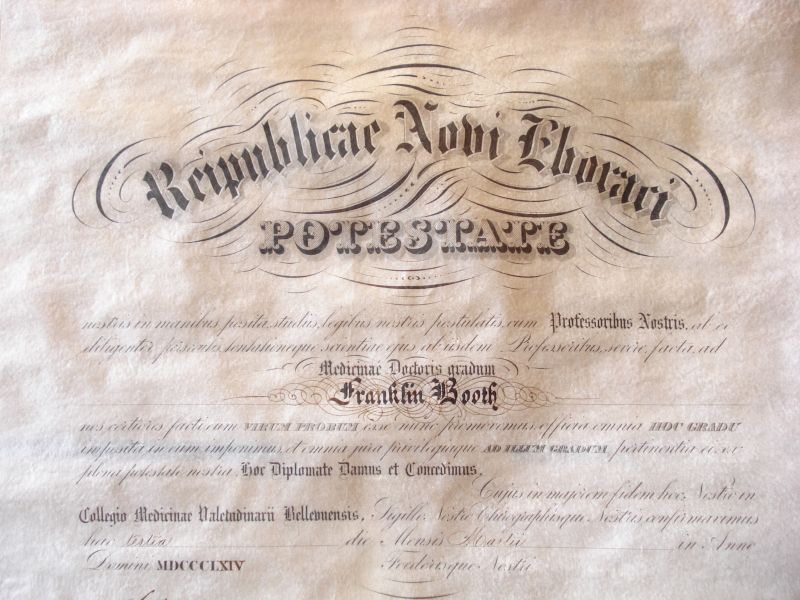 Reipublicae Novi Eboraci
POTESTATE
nostris in manibus posita, studiis, legibus nostris postulatis, cum Professoribus Nostris, ab eo
diligenter persecutis, tentationeque scientiae ejus ab iisdem Professoribus, severe, facta, ad
Medicinae Doctoris gradum
Franklin Booth
nos certiores facti eum VIRUM PROBUM esse nunc promovemus, officia omnia HOC GRADU
imposita in eum imponimus, et omnia jura privilegiaque AD ILLUM GRADUM pertinentia ei, ex
potestate nostra, Hoc Diplomate Damus et Concedimus.
Cujus in majorem fidem hoc, Nostro in
Collegio Medicinae Valetudinarii Bellevuensis, Sigillo Nostro Chirographisque Nostris confirmavimus
hocce tertia die Mensis Martii in Anno
Domini MDCCCLXIV Foederisque Nostri